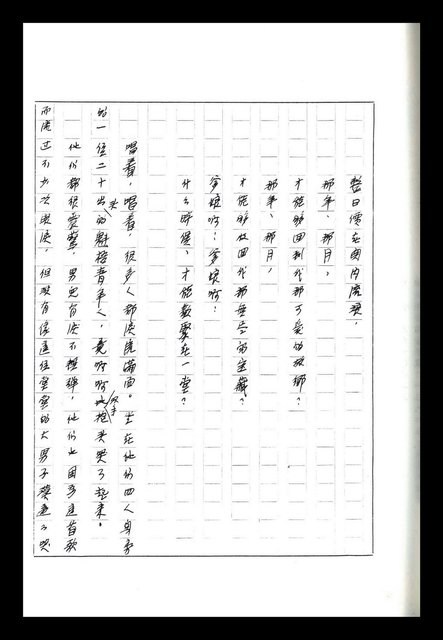 整日價在関内流浪，
那年、那月，
才能夠回到我那可爱的故鄉？
那年、那月，
才能够收回我那無尽的宝藏？
爹娘啊！爹娘啊！
什么時候，才能歡聚在一堂？
唱着，唱着，很多人都淚流滿面。坐在他们四人身旁
的一位二十出头的魁梧青年人，竟啊啊地双手抱头哭了起来。
他们都很，男兒有淚不輕彈，他们也因為这首歌
而流过不少次眼淚，但没有像這位的大男子樣這么哭